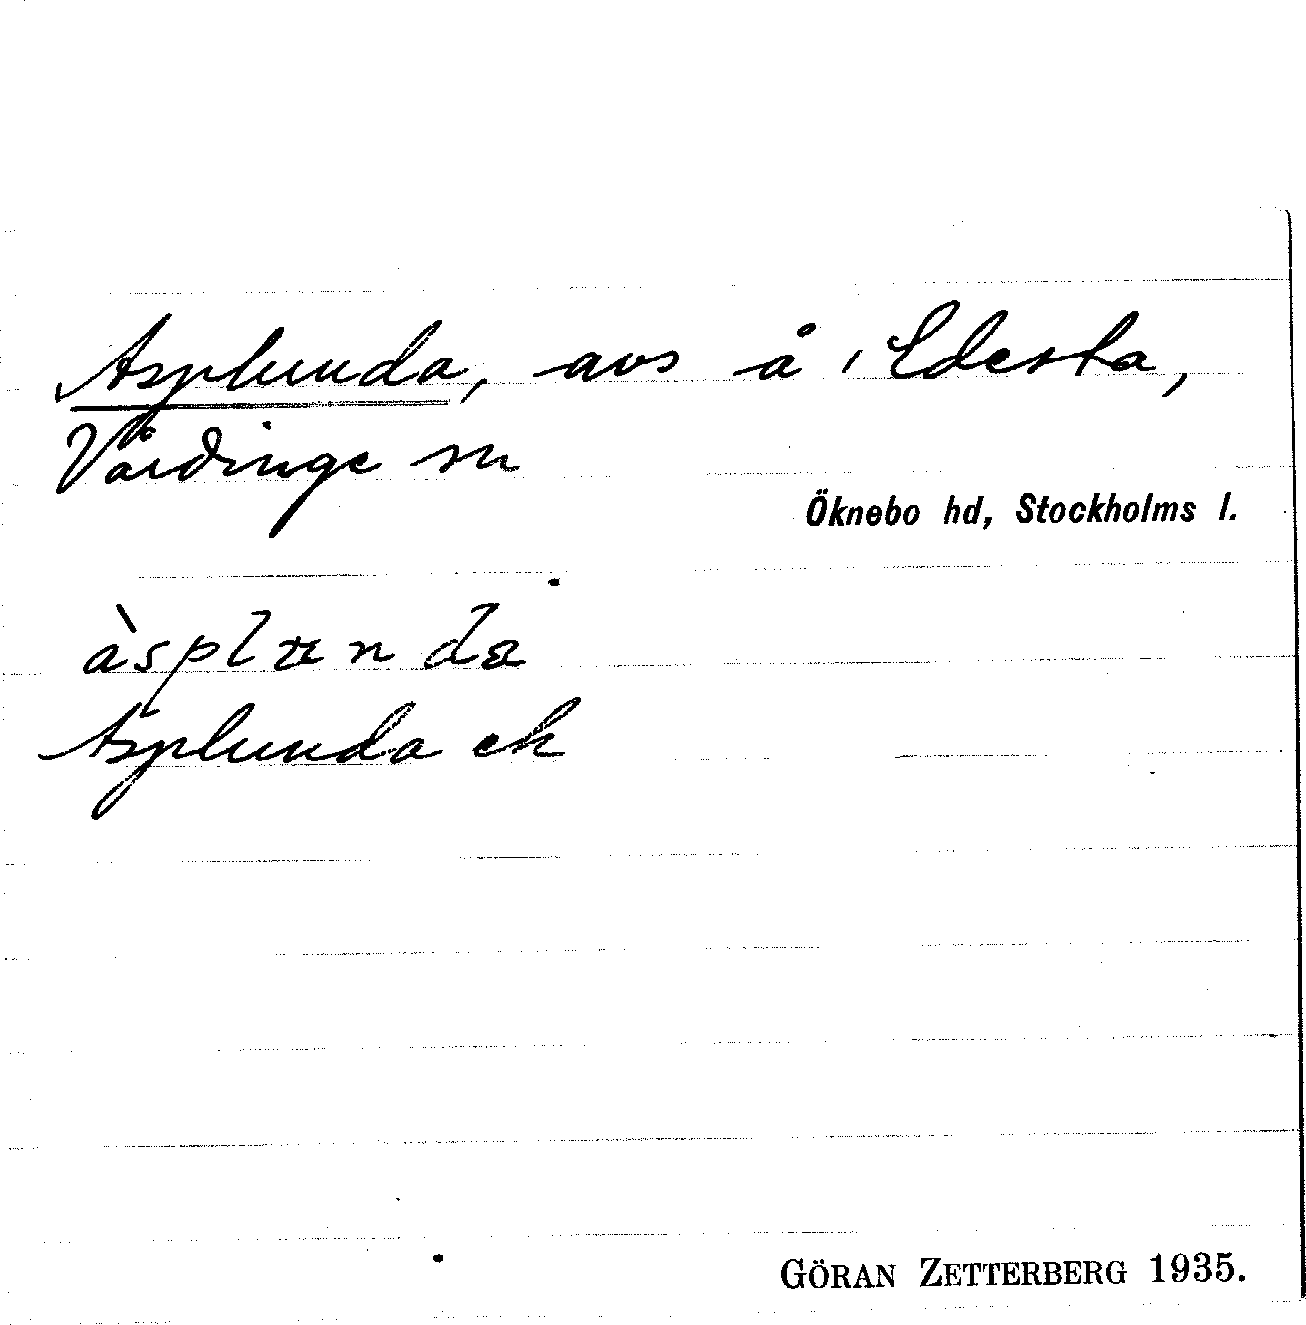 Asplunda, avs å Edesta,
Vårdinge sn
Öknebo hd, Stockholms l.
àsplunda
Asplunda ek
GÖRAN ZETTERBERG 1935.